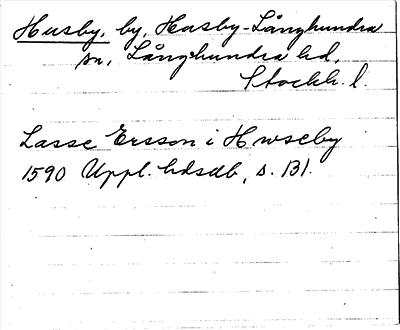 Husby, by, Husby-Långhundra
sn, Långhundra hd,
Stockh. l.
Lasse Ersson i Hwseby
1590 Uppl. hdsdb, s. 131.